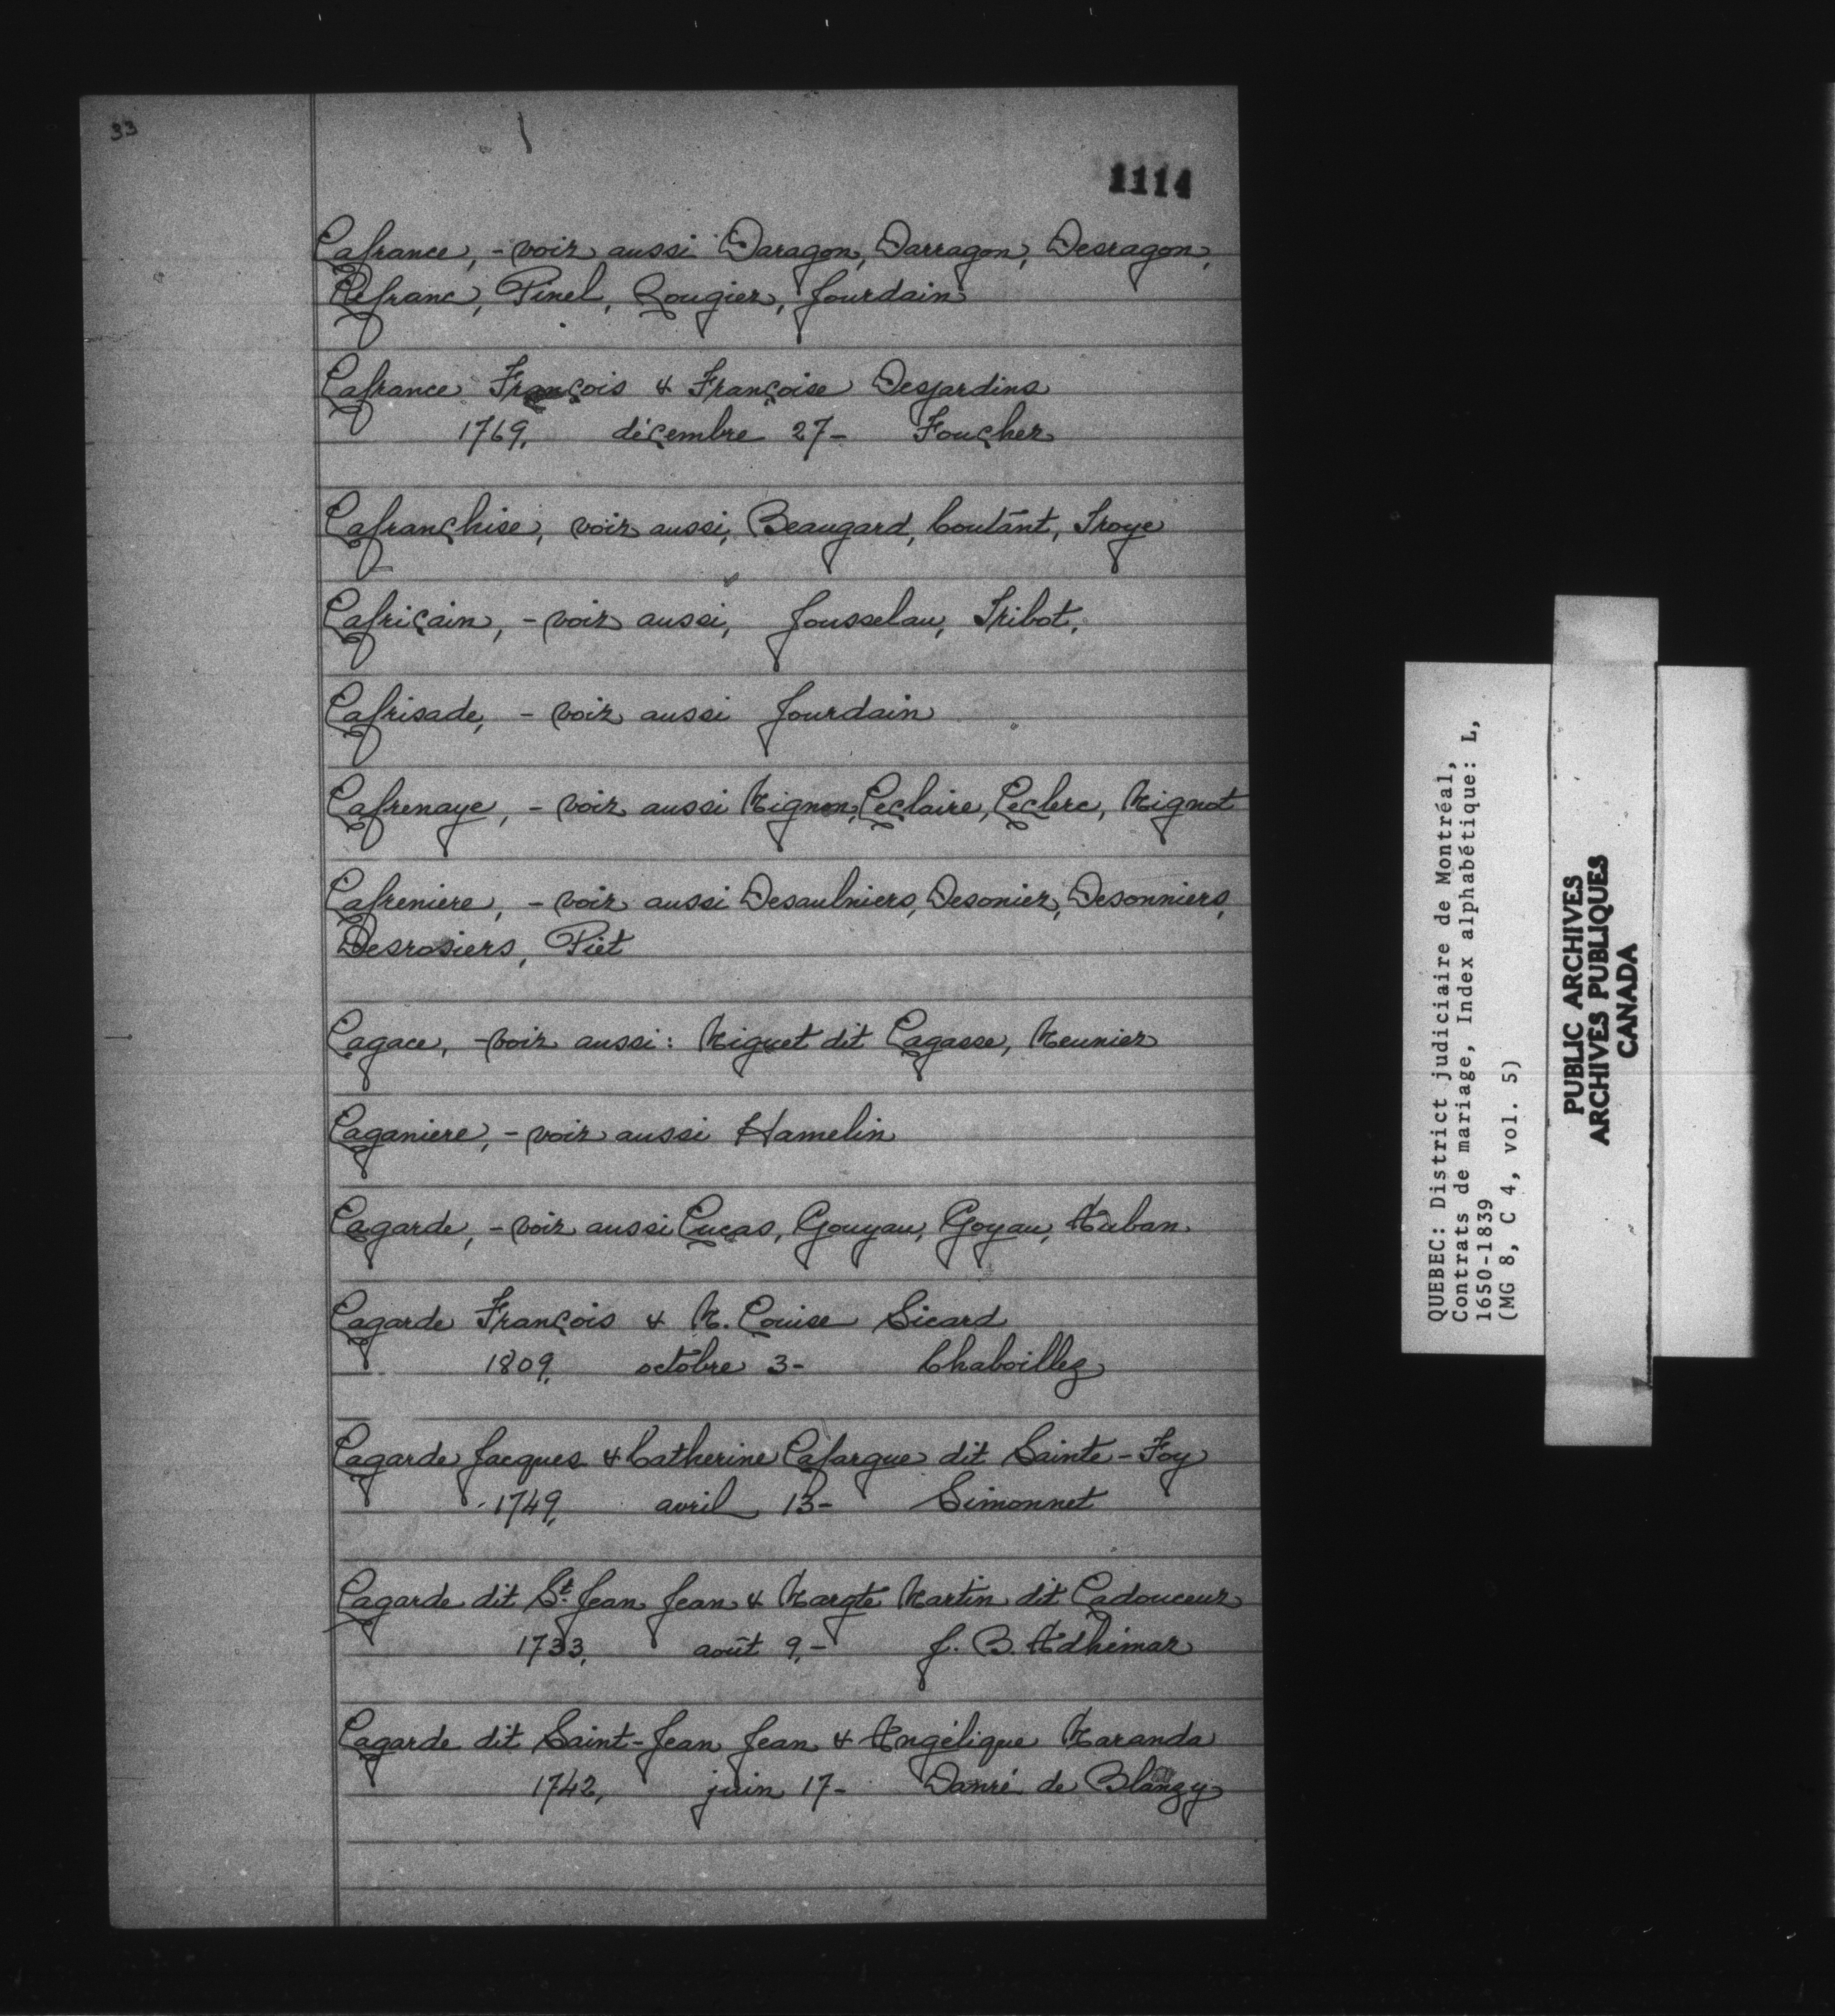 33
1114
Lafrance, - voir aussi Daragon, Darragon, Desragon,
Lefranc, Pinel, Rougier, Jourdain
Lafrance François & Françoise Desjardins
1769, décembre 27- Foucher
Lafranchise, voir aussi, Beaugard, Coutant, Troye
Lafricain, - voir aussi, Jousselau, Tribot,
Lafrisade, - voir aussi Jourdain
Lafrenaye, - voir aussi Mignon, Leclaire, Leclerc, Mignot
Lafreniere, - voir aussi Desaulniers, Desonier, Desonniers,
Desrosiers, Piet
Lagace, - voir aussi: Miguet dit Lagasse, Meunier
Laganiere, - voir aussi Hamelin
Lagarde, - voir aussi Lucas, Gouyau, Goyau, Auban.
Lagarde François & M. Louise Sicard
1809, octobre 3- Chaboillez
Lagarde Jacques & Catherine Lafargue dit Sainte-Foy
1749, avril 13- Simonnet
Lagarde dit St. Jean Jean & Margte Martin dit Ladouceur
1733, août 9,- J. B. Adhémar
Lagarde dit Saint-Jean Jean & Angélique Maranda
1742, juin 17- Danré de Blanzy
QUEBEC: District judiciaire de Montréal,
Contrats de mariage, Index alphabétique: L,
1650-1839
(MG 8, C 4, vol. 5)
PUBLIC ARCHIVES
ARCHIVES PUBLIQUES
CANADA